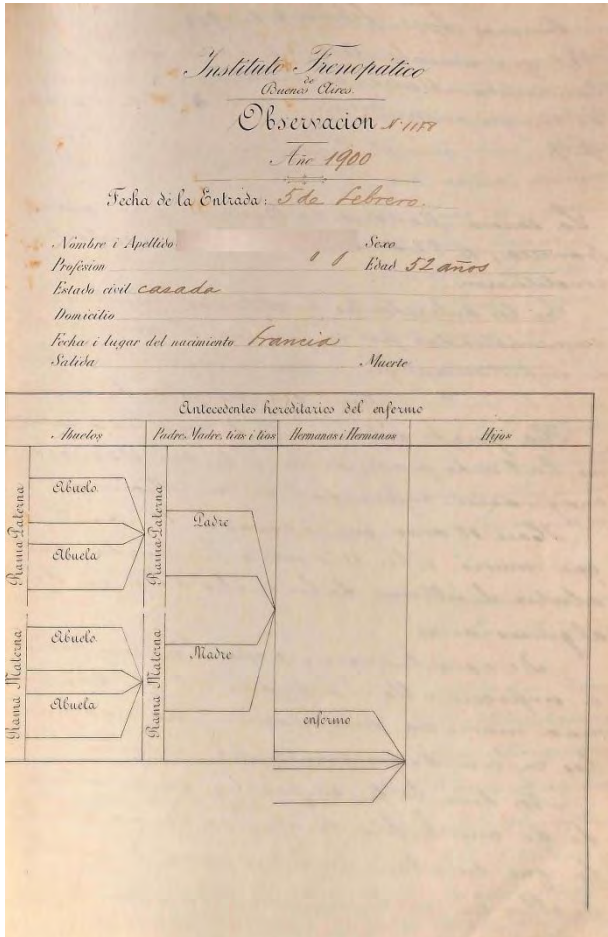 Instituto Frenopático
de
Buenos Aires.
Observacion N. 1178
Año 1900
Fecha de la Entrada: 5 de febrero.
Nombre i Apellido Sexo
Profesion Edad 52 años
Estado civil casada
Domicilio
Fecha i lugar del nacimiento Francia
Salida Muerte
Antecedentes hereditarios del enfermo
Abuelos Padre, Madre, tias i tios Hermanas i Hermanos Hijos
Rama Paterna
Abuelo
Abuela
Rama Paterna
Padre
Rama Materna
Abuelo
Abuela
Rama Materna
Madre
enfermo